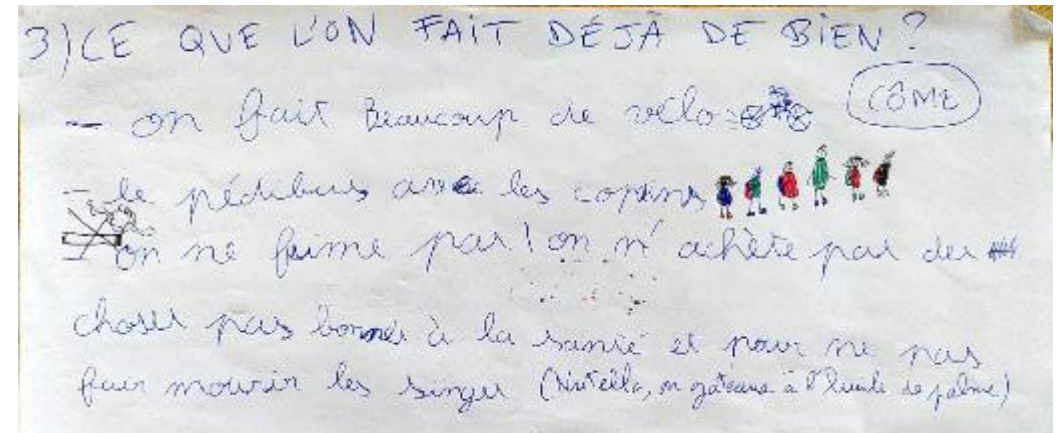 3) CE QUE L'ON FAIT DÉJÀ DE BIEN ?
CÔME
- on fait Beaucoup de vélo
- le pédibus avec les copains
- on ne fume pas ! on n'achète pas des
choses pas bonnes à la santé et pour ne pas
fair mourir les singes (Nutella, gateaux à l'huile de palme)